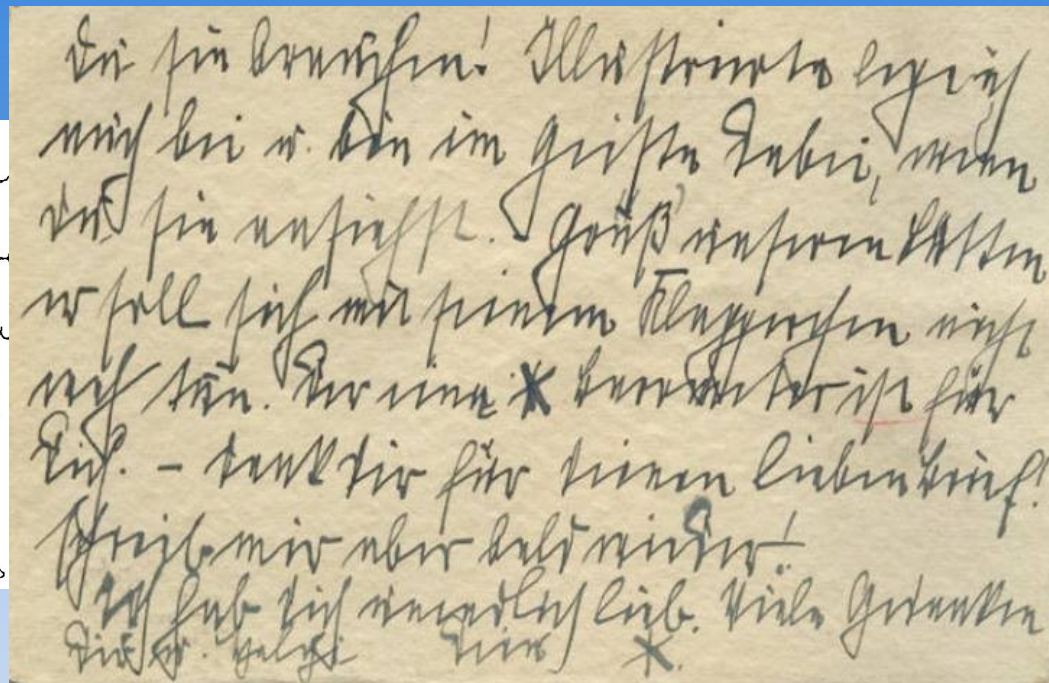 Du sie brauchen! Illustrierte lege ich
mich bei u. bin im Geiste dabei, wenn
Du sie ansiehst. – Grüß unseren
er soll sich mit seinem nicht
weh tun. Der eine x darunter ist für
Dich. – Dank Dir für Deinen lieben Brief!
Schreib mir aber bald wieder!
Ich hab Dich unendlich lieb. Viele Gedanken
Dein x.